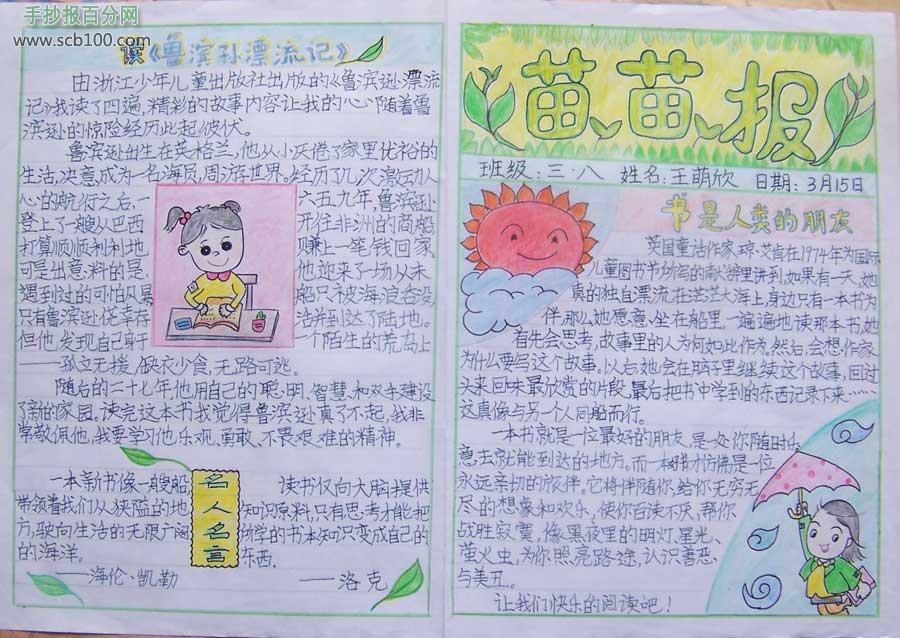 手抄报百分网
www.scb100.com
读《鲁滨孙漂流记》
由浙江少年儿童出版社出版的《鲁滨逊漂流
记》我读了四遍,精彩的故事内容让我的心随着鲁
滨逊的惊险经历此起彼伏。
鲁滨逊出生在英格兰,他从小厌倦了家里优裕的
生活,决意成为一名海员,周游世界。经历了几次激动人
心的航行之后,一六五九年,鲁滨逊
登上了一艘从巴西开往非洲的商船
打算顺顺利利地赚上一笔钱回家
可是出意料的是,他迎来了一场从未
遇到过的可怕风暴船只被海浪吞没
只有鲁滨逊侥幸存活并到达了陆地。
但他发现自己身于一个陌生的荒岛上
——孤立无援,缺衣少食,无路可逃。
随后的二十七年他用自己的聪明、智慧和双手建设
了新的家园。读完这本书我觉得鲁滨逊真了不起,我非
常敬佩他,我要学习他乐观、勇敢、不畏艰难的精神。
一本新书像一艘船
带领着我们从狭隘的地
方,驶向生活的无限广阔
的海洋。
——海伦·凯勒
名人名言
读书仅向大脑提供
知识原料,只有思考才能把
所学的书本知识变成自己的
东西.
——洛克
苗苗报
班级:三·八 姓名:王萌欣 日期:3月15日
书是人类的朋友
英国童话作家琼·艾肯在1974年为国际
儿童图书节所写的献辞里讲到,如果有一天,她
真的独自漂流在茫茫大海上,身边只有一本书为
伴,那么她愿意坐在船里,一遍遍地读那本书,她
首先会思考,故事里的人为何如此作为。然后,会想作家
为什么要写这个故事。以后,她会在脑子里继续这个故事,回过
头来回味最欣赏的片段,最后把书中学到的东西记录下来……
这真像与另一个人同船而行。
一本书就是一位最好的朋友,是一处你随时乐
意去就能到达的地方。而一本好书仿佛是一位
永远亲切的旅伴。它将伴随你,给你无穷无
尽的想象和欢乐,使你百读不厌,帮你
战胜寂寞,像黑夜里的明灯、星光、
萤火虫,为你照亮路途,认识善恶
与美丑。
让我们快乐的阅读吧!